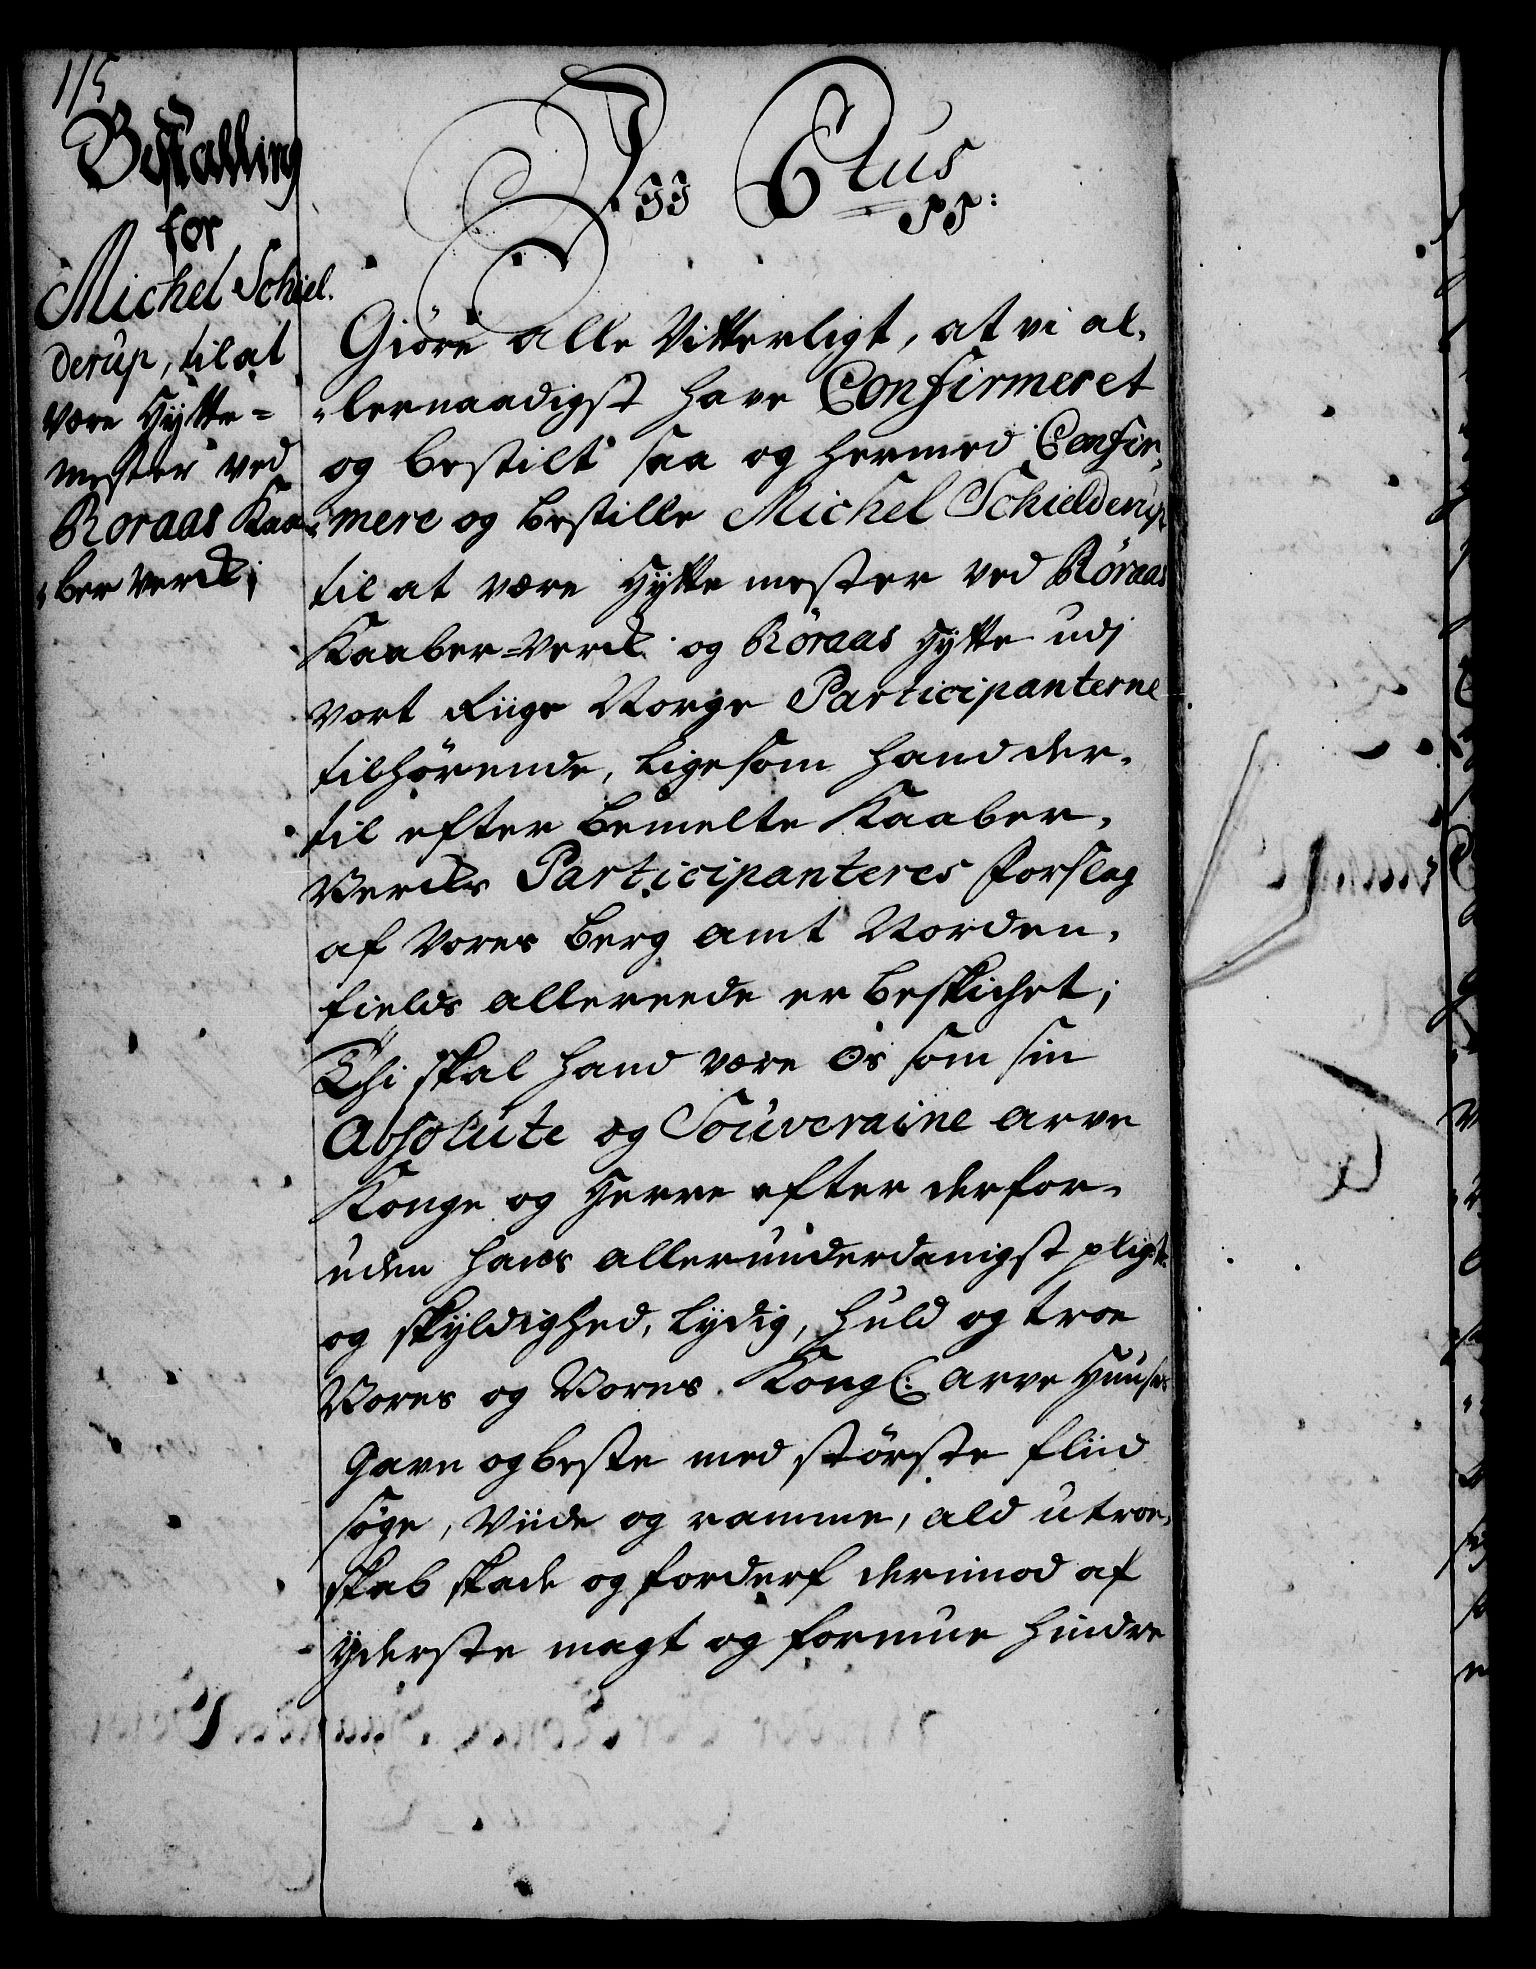 115
Bestalling
for
Michel Schiel.
derup, til at
være Hytte=
mester ved
Roraas Kaa-
-ber Verck;
Giöre alle Vitterligt, at vi al-
-lernaadigst have Confirmeret
og bestilt saa og hermed Confir-
-mere og bestille Michel Schielderup
til at være Hytte mester ved Röraas
Kaaber=Verck og Röraas Hytte udj
vort Riige Norge Participanterne
tilhörende, ligesom hand der-
til efter bemelte Kaaber-
Vercks Participanteres forslag
af Vores Berg amt Norden-
fields allereede er beskichet;
Thi skal hand være Os som sin
Absolute og Souveraine arve
Konge og Herre efter derfor-
uden hans allerunderdanigst pligt
og skyldighed, lydig, huld og troe
Vores og Vores Kongl: arve Huuses
Gavn og beste med störste fliid
söge, viide og ramme, ald utroe-
skab skade og forderf derimod af
yderste magt og formue hindre